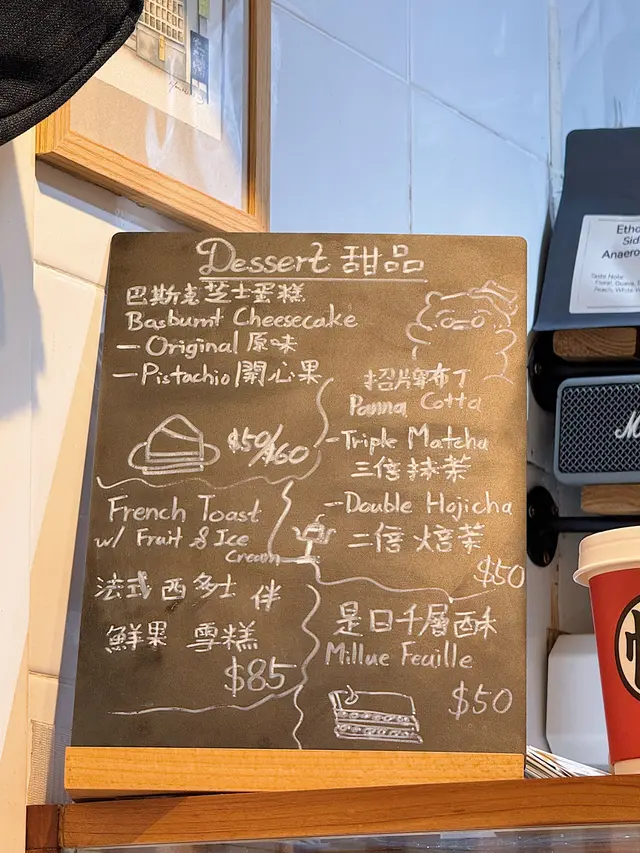 Dessert 甜品
巴斯克芝士蛋糕
Basburnt Cheesecake
– Original 原味
– Pistachio 開心果
$50/$60
招牌布丁
Panna Cotta
– Triple Matcha
三倍抹茶
– Double Hojicha
二倍焙茶
$50
French Toast
w/ Fruit & Ice
Cream
法式西多士伴
鮮果 雪糕
$85
是日千層酥
Millue Feuille
$50
Etho
Sid
Anaero
Taste Note
Floral, Guava,
Peach, White W